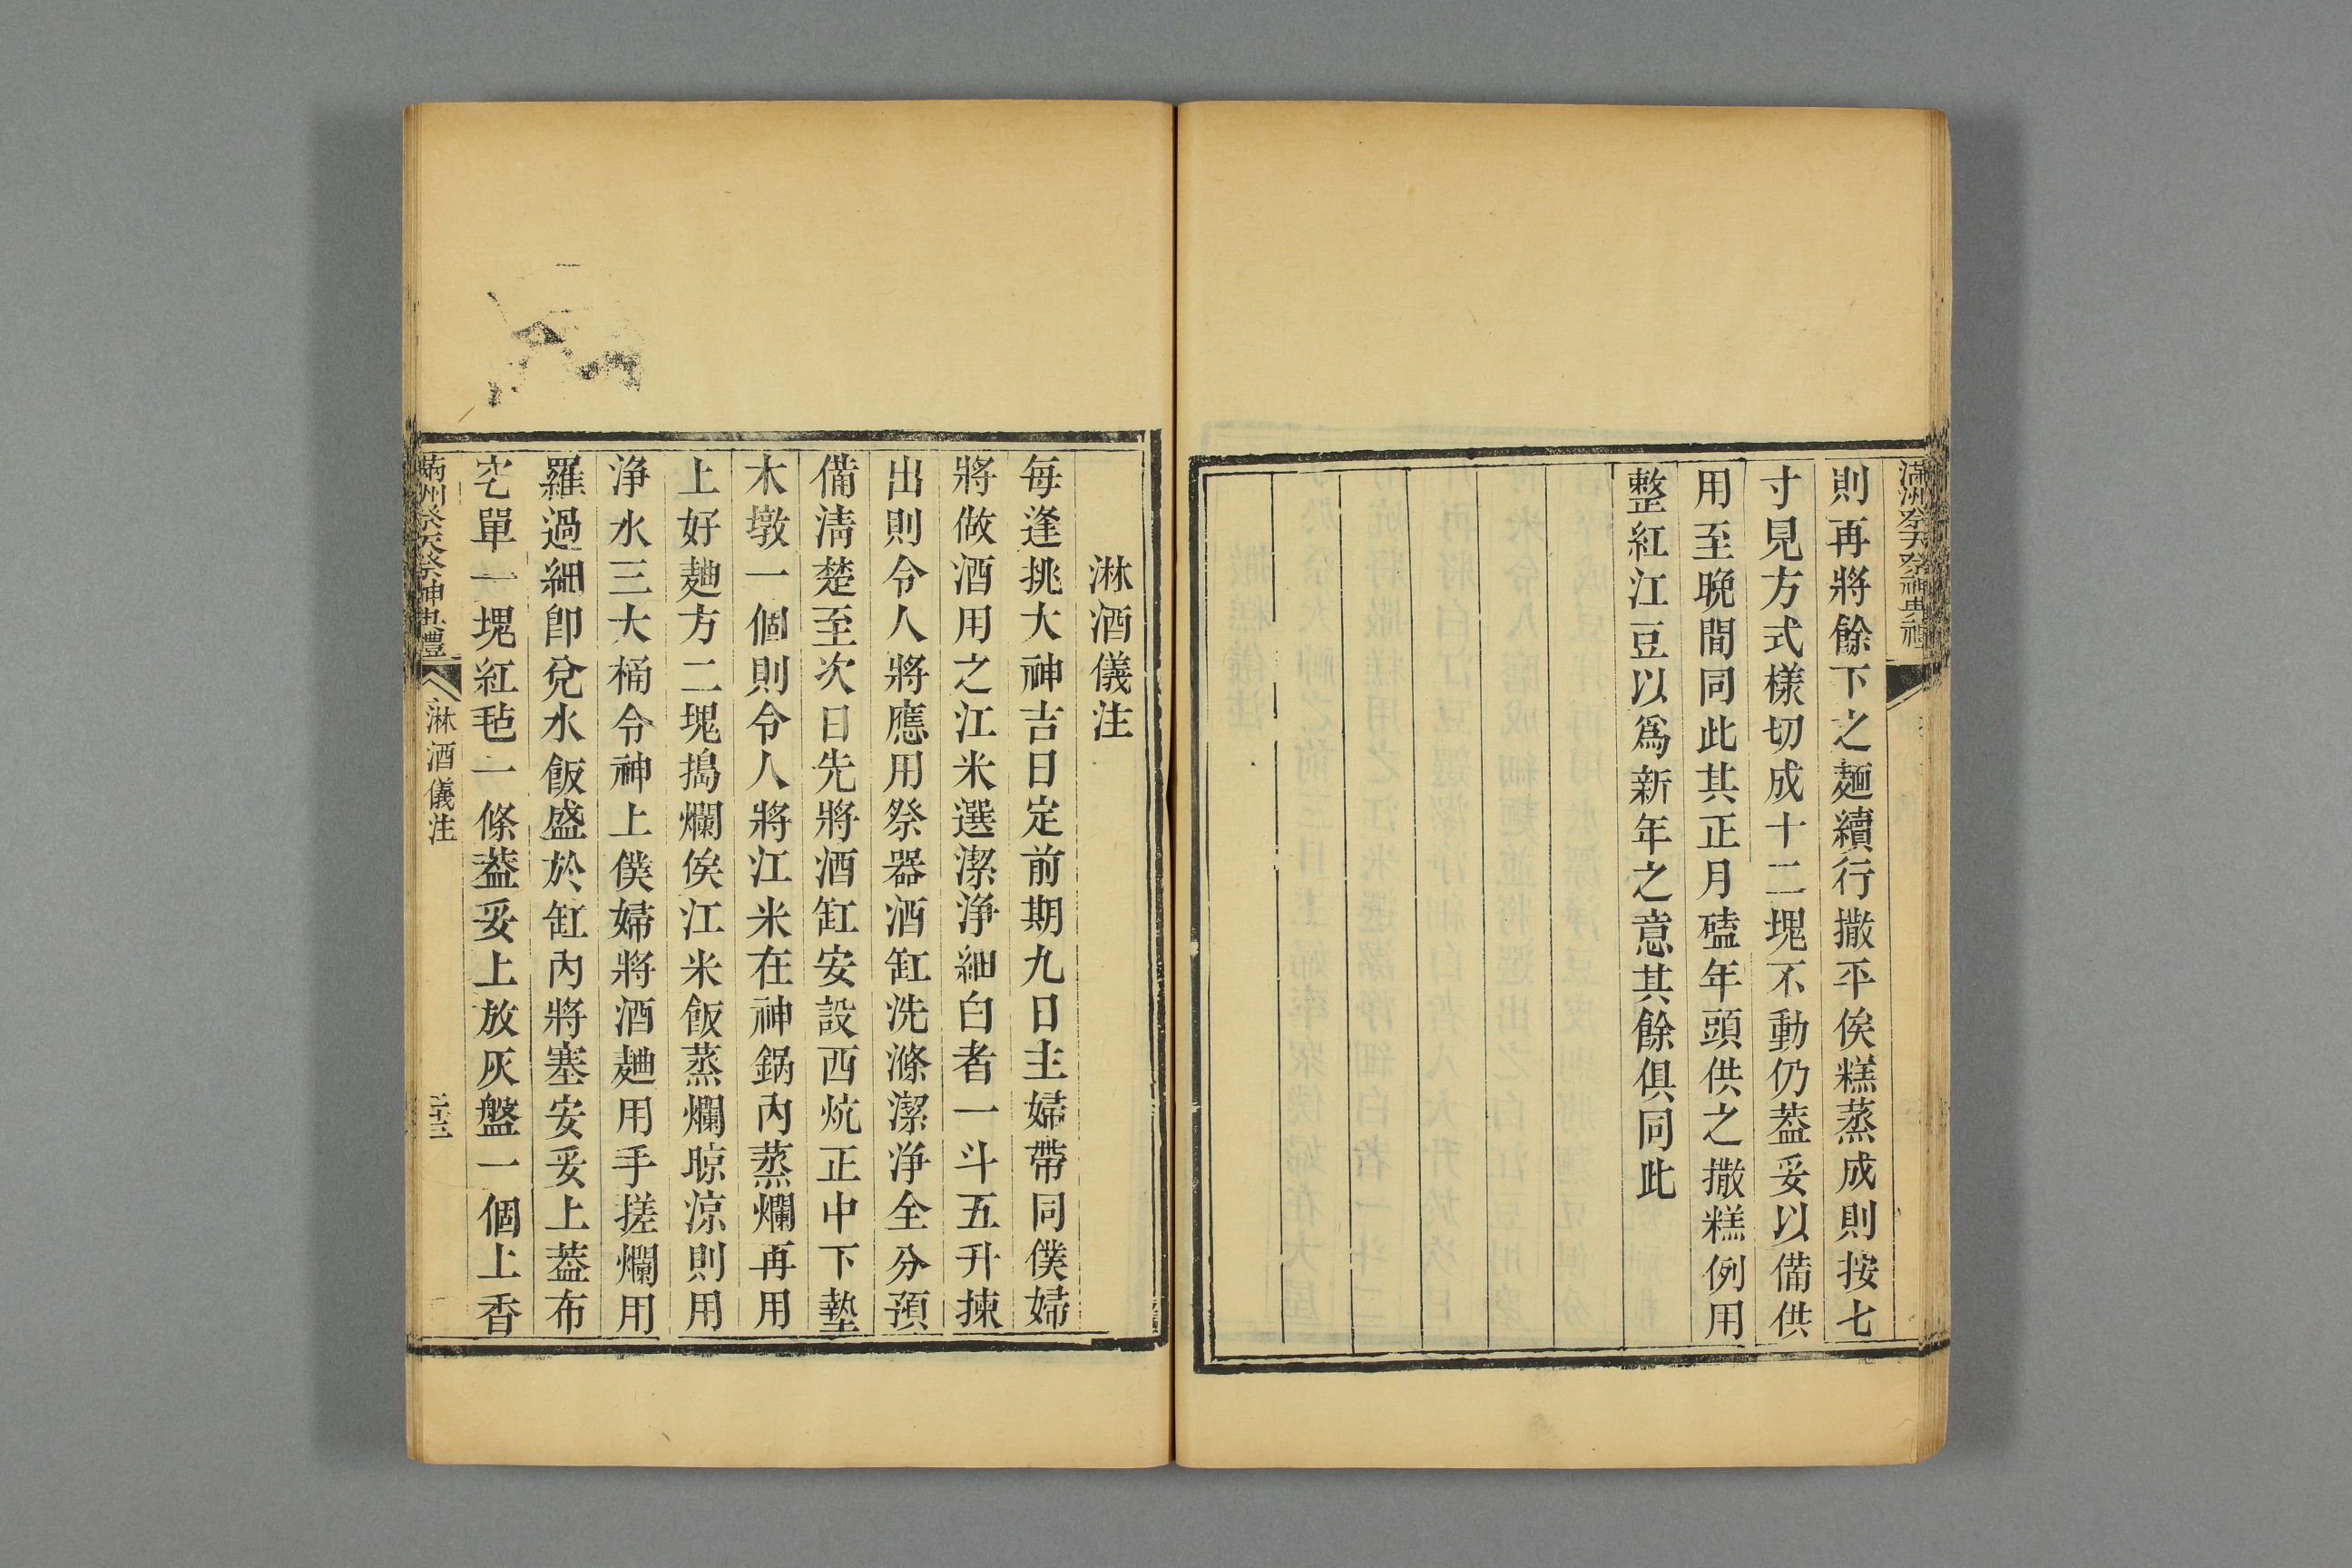 滿洲祭天祭神典禮
則再將餘下之麵續行撒平俟糕蒸成則按七
寸見方式樣切成十二塊不動仍葢妥以備供
用至晩間同此其正月磕年頭供之撒糕例用
整紅江豆以爲新年之意其餘俱同此
淋酒儀注
每逢挑大神吉日定前期九日主婦帶同僕婦
將做酒用之江米選潔淨細白者一斗五升揀
出則令人將應用祭器酒缸洗滌潔淨全分預
備淸楚至次日先將酒缸安設西炕正中下墊
木墩一個則令人將江米在神鍋內蒸爛再用
上好麯方二塊搗爛俟江米飯蒸爛晾涼則用
淨水三大桶令神上僕婦將酒麯用手搓爛用
羅過細卽兌水飯盛於缸內將塞安妥上葢布
空單一塊紅毡一條葢妥上放灰盤一個上香
滿洲祭天祭神典禮
淋酒儀注